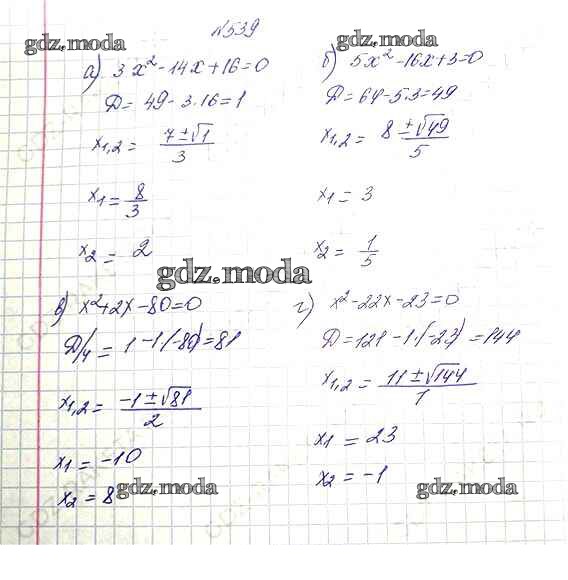 №539
gdz.moda
gdz.moda
а) 3x² - 14x + 16 = 0
Д = 49 - 3·16 = 1
x₁,₂ = (7 ± √1)/3
x₁ = 8/3
x₂ = 2
б) 5x² - 16x + 3 = 0
Д = 64 - 5·3 = 49
x₁,₂ = (8 ± √49)/5
x₁ = 3
x₂ = 1/5
gdz.moda
в) x² + 2x - 80 = 0
Д/4 = 1 - 1·(-80) = 81
x₁,₂ = (-1 ± √81)/2
x₁ = -10
x₂ = 8
gdz.moda
г) x² - 22x - 23 = 0
Д = 121 - 1·(-23) = 144
x₁,₂ = (11 ± √144)/1
x₁ = 23
x₂ = -1
gdz.moda